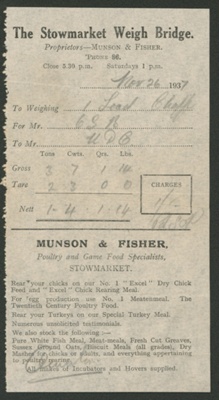 The Stowmarket Weigh Bridge.
Proprietors—MUNSON & FISHER.
'PHONE 86.
Close 5.30 p.m. Saturdays 1 p.m.
Nov 26 1937
To Weighing 1 Load
For Mr.
To Mr. UDC
Tons Cwts. Qrs. Lbs.
Gross 3 7 1 14
Tare 2 3 0
CHARGES
Nett 1 - 4 1 - 14
1/-
MUNSON & FISHER,
Poultry and Game Food Specialists,
STOWMARKET.
Rear your chicks on our No. 1 "Excel" Dry Chick
Feed and "Excel" Chick Rearing Meal.
For egg production use No. 3 Meatenmeal. The
Twentieth Century Poultry Food.
Rear your Turkeys on our Special Turkey Meal.
Numerous unsolicited testimonials.
We also stock the following:—
Pure White Fish Meal, Meat-meals, Fresh Cut Greaves,
Sussex Ground Oats, Biscuit Meals (all grades), Dry
Mashes for chicks or adults, and everything appertaining
to poultry
All Makes of Incubators and Hovers supplied.